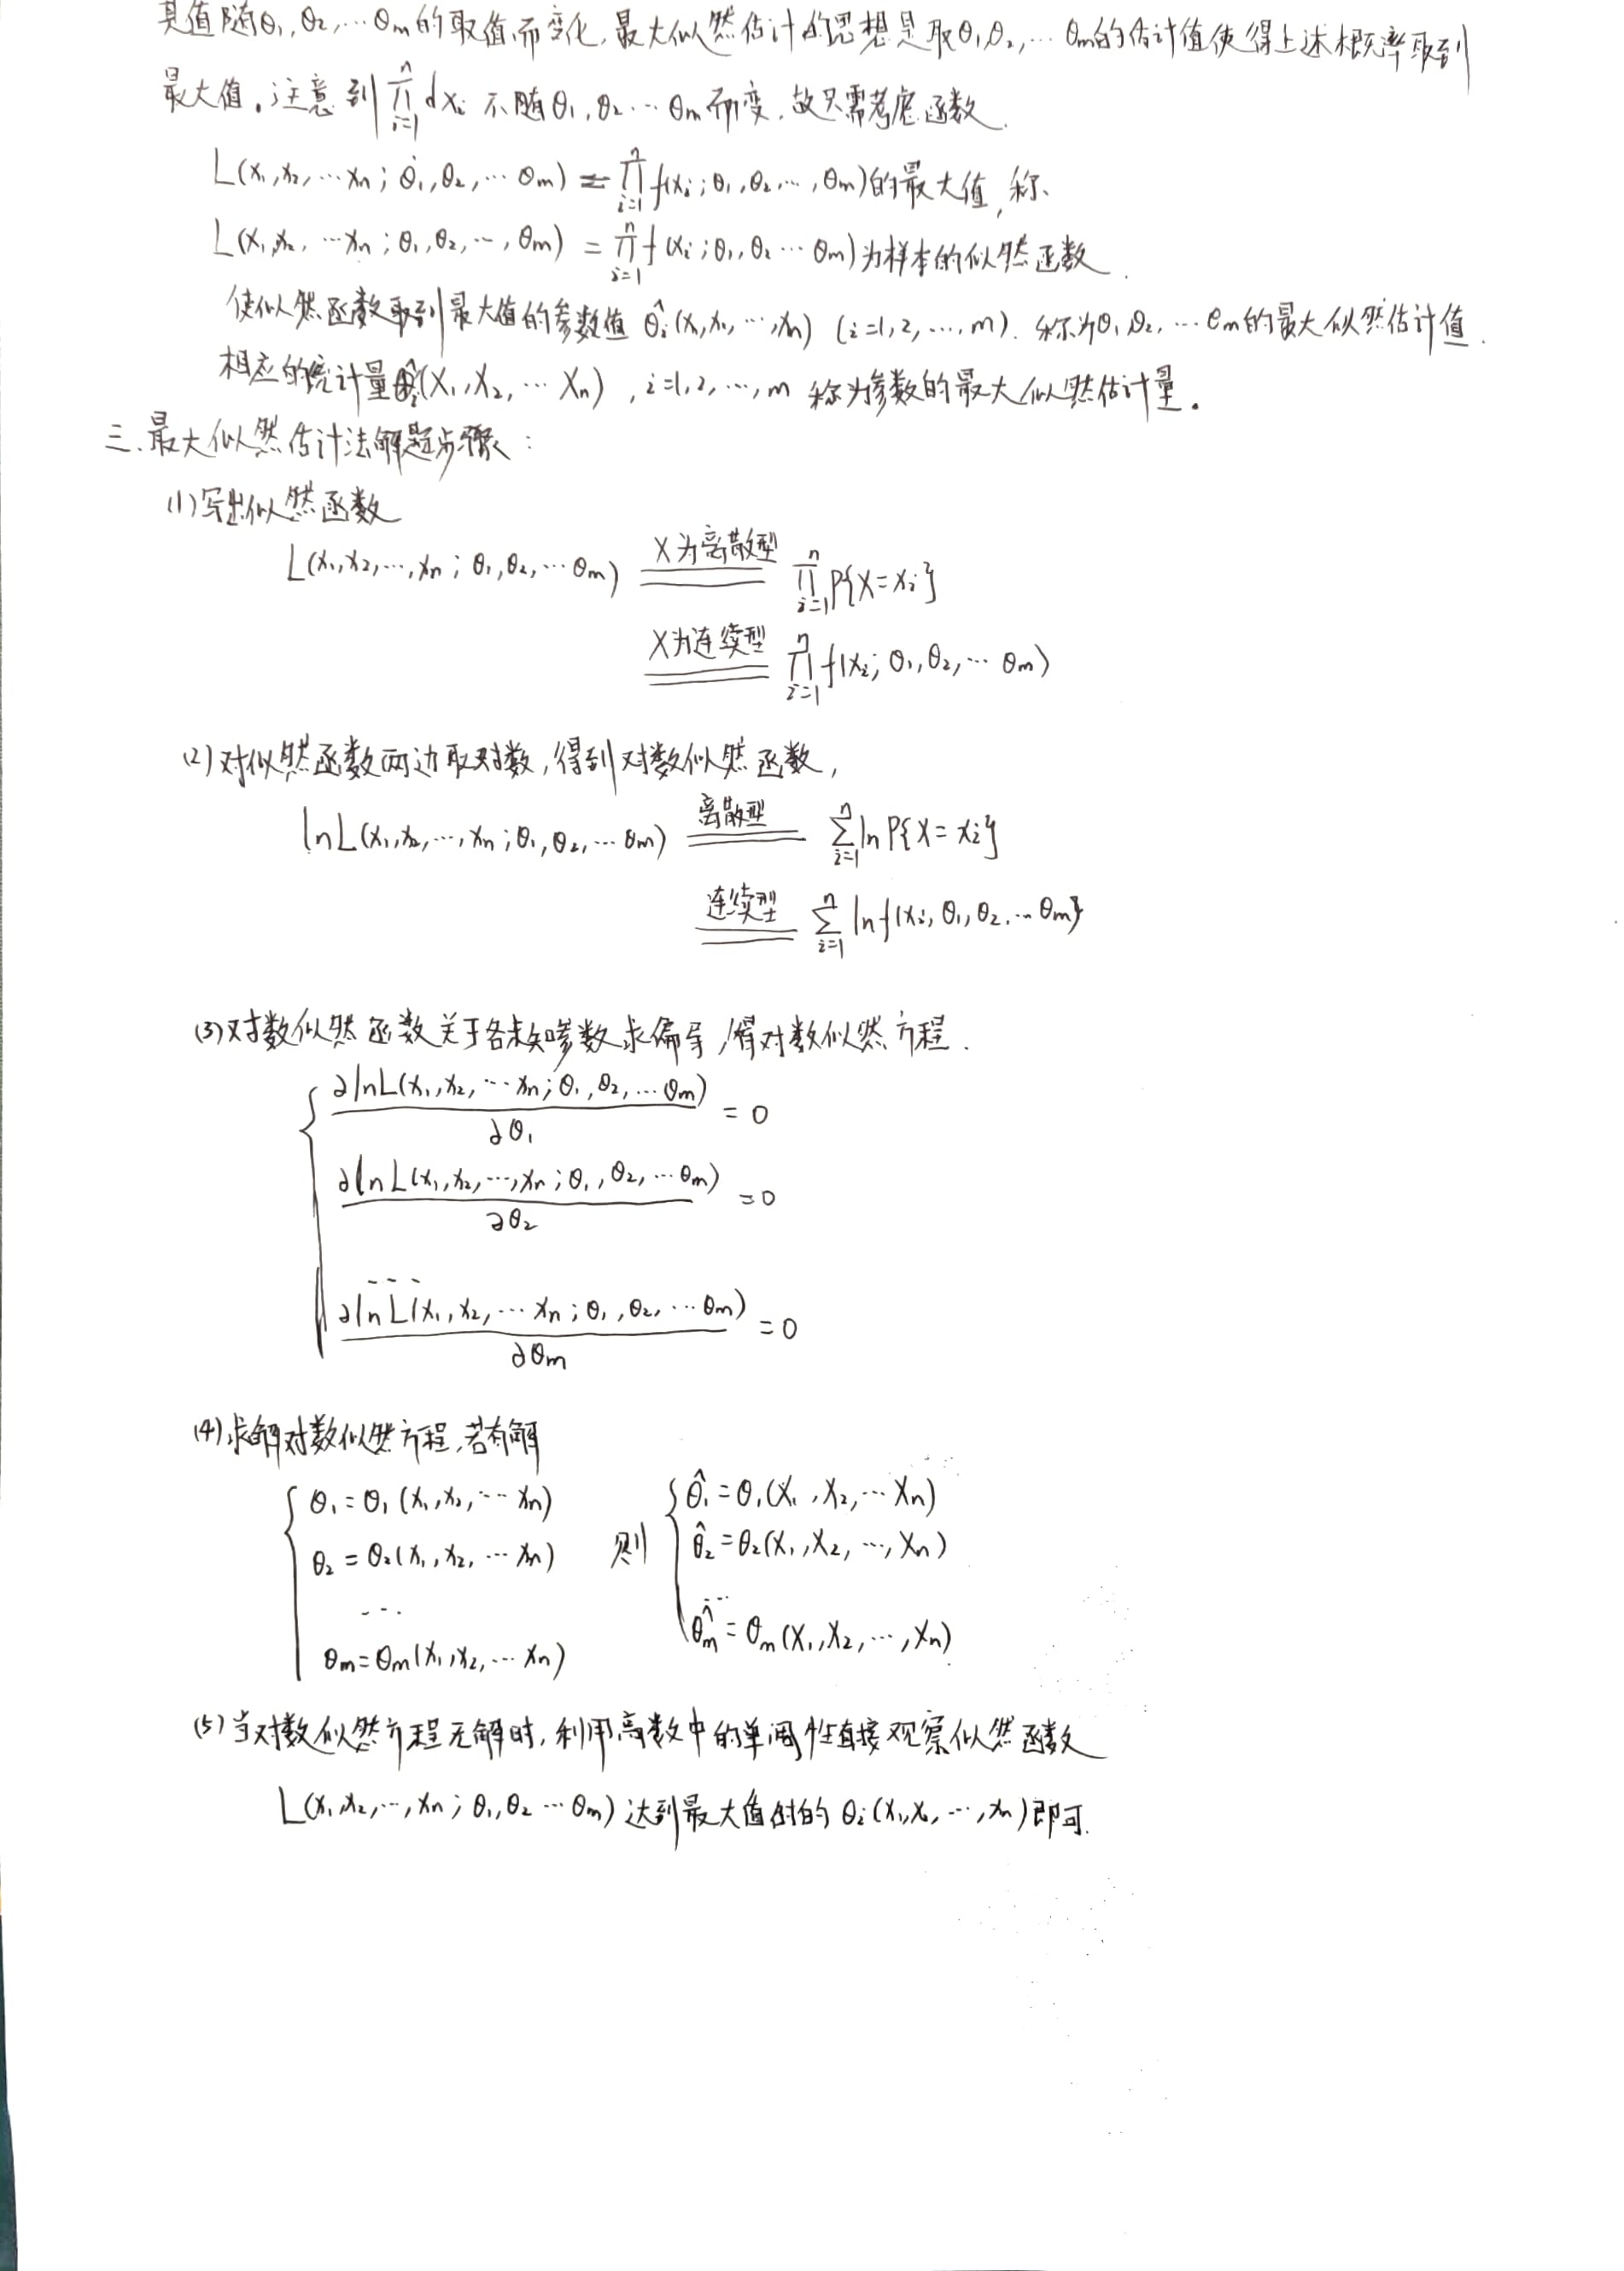 其值随θ₁,θ₂,…θm的取值而变化,最大似然估计的思想是取θ₁,θ₂,…θm的估计值使得上述概率取到
最大值。注意到∏_{i=1}^{n} dxᵢ 不随θ₁,θ₂…θm而变,故只需考虑函数.
L(x₁,x₂,…xn;θ₁,θ₂,…θm) = ∏_{i=1}^{n} f(xᵢ;θ₁,θ₂…,θm)的最大值,称
L(x₁,x₂,…xn;θ₁,θ₂,…,θm) = ∏_{i=1}^{n} f(xᵢ;θ₁,θ₂…θm)为样本的似然函数.
使似然函数取到最大值的参数值 θ̂ᵢ(x₁,x₂,…,xn) (i=1,2,…,m). 称为θ₁,θ₂,…θm的最大似然估计值.
相应的统计量θ̂ᵢ(X₁,X₂,…Xn),i=1,2,…,m 称为参数的最大似然估计量。
三.最大似然估计法解题步骤:
(1)写出似然函数
L(x₁,x₂,…,xn;θ₁,θ₂,…θm) X为离散型 ∏_{i=1}^{n} P{X=xᵢ}
X为连续型 ∏_{i=1}^{n} f(xᵢ;θ₁,θ₂,…θm)
(2)对似然函数两边取对数,得到对数似然函数,
lnL(x₁,x₂,…,xn;θ₁,θ₂,…θm) 离散型 ∑_{i=1}^{n} ln P{X=xᵢ}
连续型 ∑_{i=1}^{n} ln f(xᵢ,θ₁,θ₂…θm}
(3)对数似然函数关于各未知参数求偏导,得对数似然方程.
{ ∂lnL(x₁,x₂,…xn;θ₁,θ₂,…θm)/∂θ₁ = 0
∂lnL(x₁,x₂,…,xn;θ₁,θ₂,…θm)/∂θ₂ = 0
---
∂lnL(x₁,x₂,…xn;θ₁,θ₂,…θm)/∂θm = 0
(4)求解对数似然方程,若有解
{ θ₁=θ₁(x₁,x₂,…xn) 则 { θ̂₁=θ₁(X₁,X₂,…Xn)
θ₂=θ₂(x₁,x₂,…xn) θ̂₂=θ₂(X₁,X₂,…,Xn)
… …
θm=θm(x₁,x₂,…xn) θ̂m=θm(X₁,X₂,…,Xn)
(5)当对数似然方程无解时,利用高数中的单调性直接观察似然函数
L(x₁,x₂,…,xn;θ₁,θ₂…θm)达到最大值时的θᵢ(x₁,x₂,…,xn)即可.